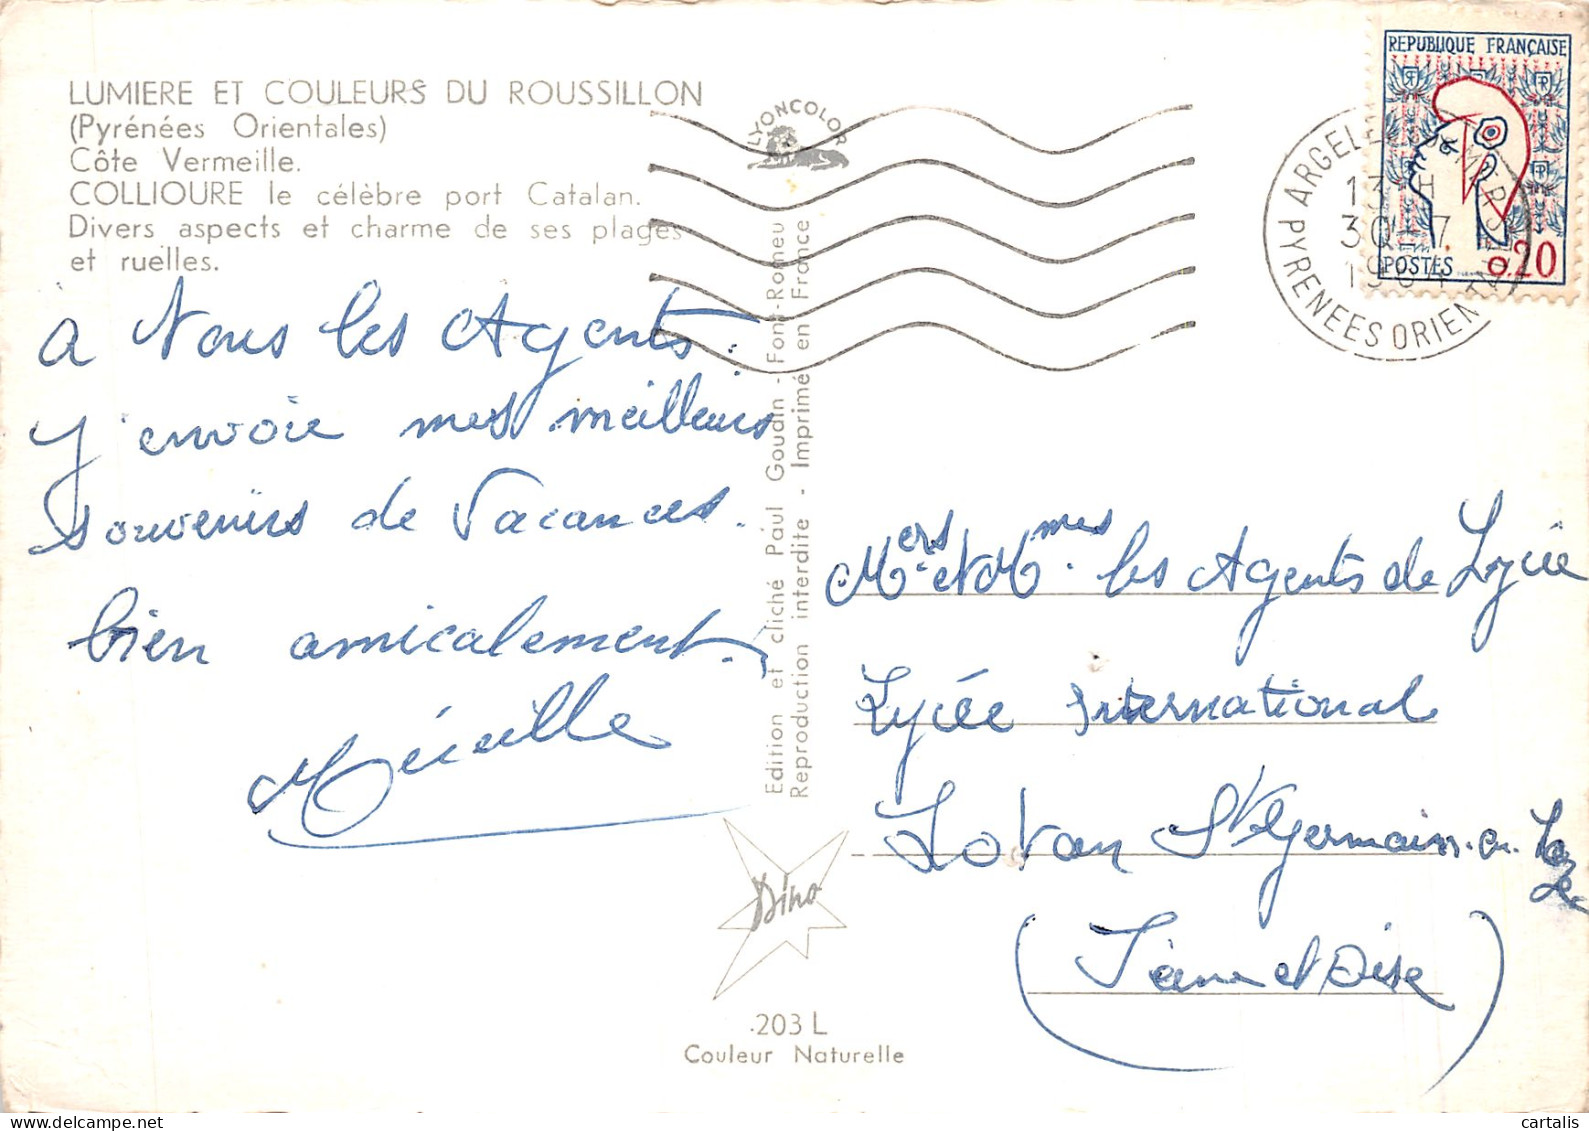 LUMIERE ET COULEURS DU ROUSSILLON
(Pyrénées Orientales)
Côte Vermeille.
COLLIOURE le célèbre port Catalan.
Divers aspects et charme de ses plages
et ruelles.
à Vous les Agents.
J'envoie mes meilleurs
souvenirs de Vacances.
bien amicalement.
Mireille
LYONCOLOR
Edition et cliché Paul Goudin - Font-Romeu
Reproduction interdite - Imprimé en France
Dino
203 L
Couleur Naturelle
REPUBLIQUE FRANÇAISE
POSTES 0.20
ARGELES S/MER
13 H
30-7
1964
PYRENEES ORIENT
Mers et Mmes les Agents de Lycée
Lycée International
Lovan St Germain-en-Laye
(Seine et Oise)
cartalis